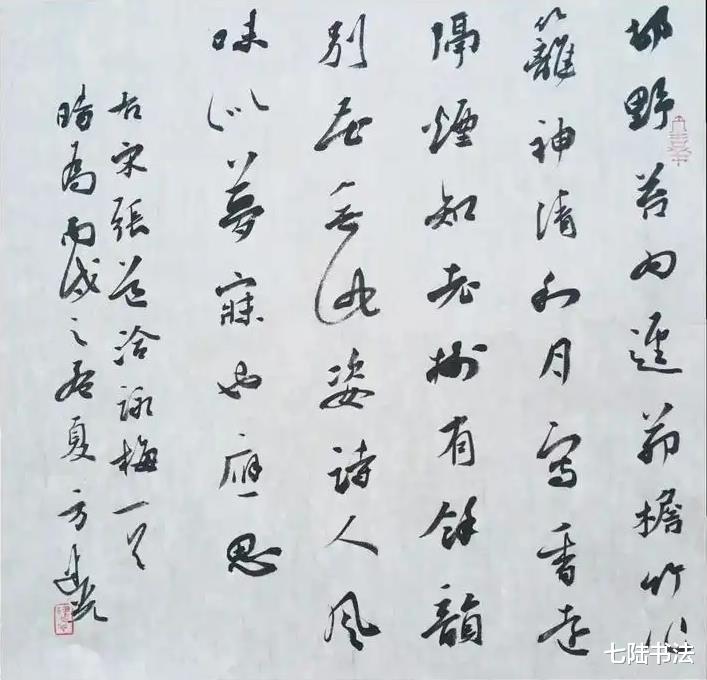 野苔為逕茆檐竹作
籬神清和月寫香遠
隔煙知老樹有餘韻
別花無此姿詩人風
味似夢寐也應思
右宋張道洽詠梅一首
時為丙戌之夏方建光
七陆书法